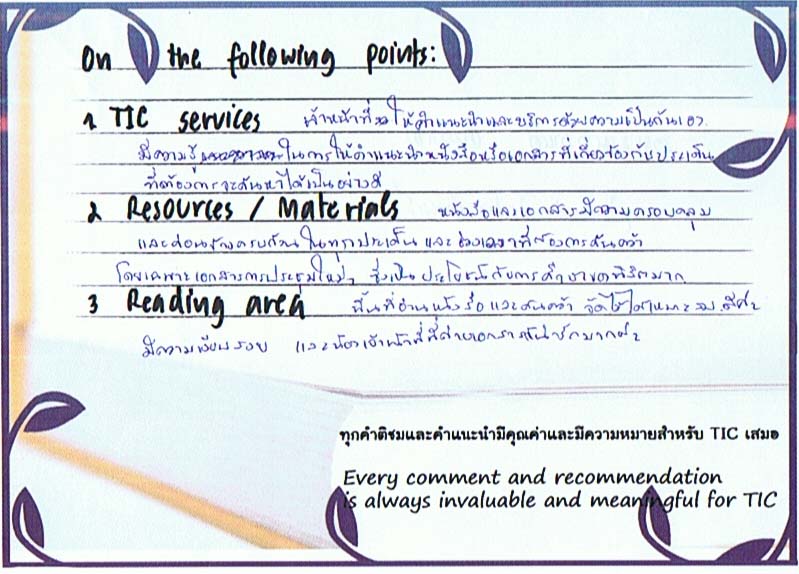 On the following points:
1 TIC services เจ้าหน้าที่ ให้คำแนะนำและบริการด้วยความเป็นกันเอง
มีความรู้ ในการให้คำแนะนำหนังสือหรือเอกสารที่เกี่ยวข้องกับประเด็น
ที่ต้องการจะค้นหาได้เป็นอย่างดี
2 Resources / Materials หนังสือและเอกสารมีความครอบคลุม
และค่อนข้างครบถ้วน ในทุกประเด็น และช่วงเวลาที่ต้องการค้นคว้า
โดยเฉพาะเอกสารการประชุมใหม่ๆ ซึ่งเป็นประโยชน์กับการ มาก
3 Reading area พื้นที่อ่านหนังสือ และค้นคว้า จัดไว้ได้เหมาะสม ดีค่ะ
มีความเงียบสงบ และน้องเจ้าหน้าที่ที่ถ่ายเอกสารก็น่ารักมากค่ะ
ทุกคำติชมและคำแนะนำมีคุณค่าและมีความหมายสำหรับ TIC เสมอ
Every comment and recommendation
is always invaluable and meaningful for TIC